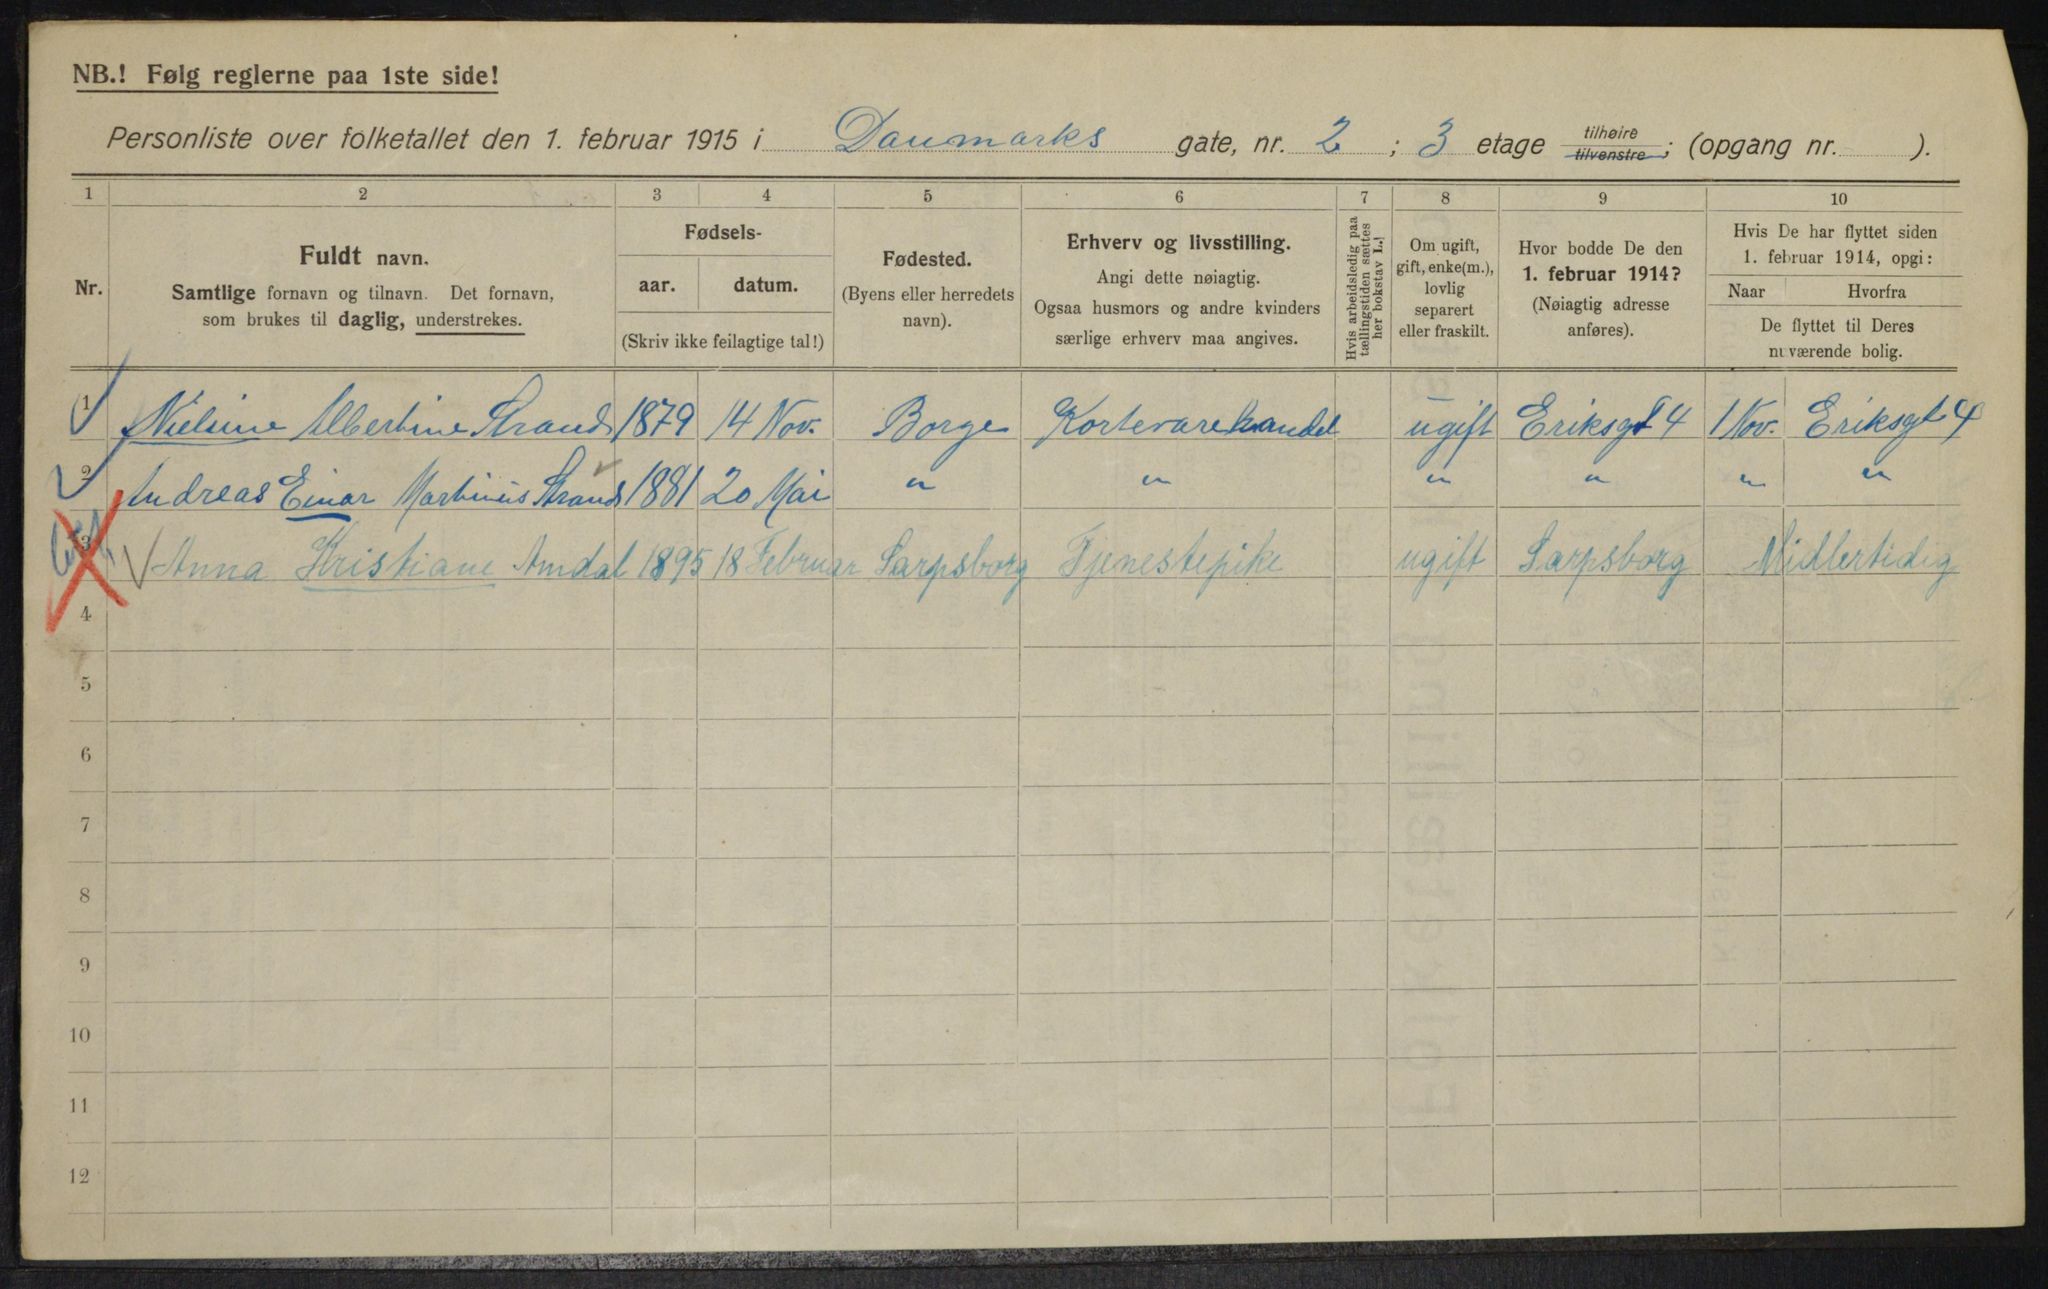 NB.! Følg reglerne paa 1ste side!
Personliste over folketallet den 1. februar 1915 i Danmarks gate, nr. 2 ; 3 etage tilhøire tilvenstre; (opgang nr. ).
1 2 3 4 5 6 7 8 9 10
Nr.
Fuldt navn.
Samtlige fornavn og tilnavn. Det fornavn,
som brukes til daglig, understrekes.
Fødsels-
aar. datum.
(Skriv ikke feilagtige tal!)
Fødested.
(Byens eller herredets
navn).
Erhverv og livsstilling.
Angi dette nøiagtig.
Ogsaa husmors og andre kvinders
særlige erhverv maa angives.
Hvis arbeidsledig paa
tællingstiden sættes
her bokstav L.!
Om ugift,
gift, enke(m.),
lovlig
separert
eller fraskilt.
Hvor bodde De den
1. februar 1914?
(Nøiagtig adresse
anføres).
Hvis De har flyttet siden
1. februar 1914, opgi:
Naar Hvorfra
De flyttet til Deres
nuværende bolig.
1 Nielsine Albertine Strand 1879 14 Nov. Borge Kortevarehandel ugift Eriksgt 4 1 Nov. Eriksgt 4
2 Andreas Einar Martinius Strand 1881 20 Mai " " " " " "
3 Anna Kristiane Amdal 1895 18 Februar Sarpsborg Tjenestepike ugift Sarpsborg Midlertidig
4
5
6
7
8
9
10
11
12